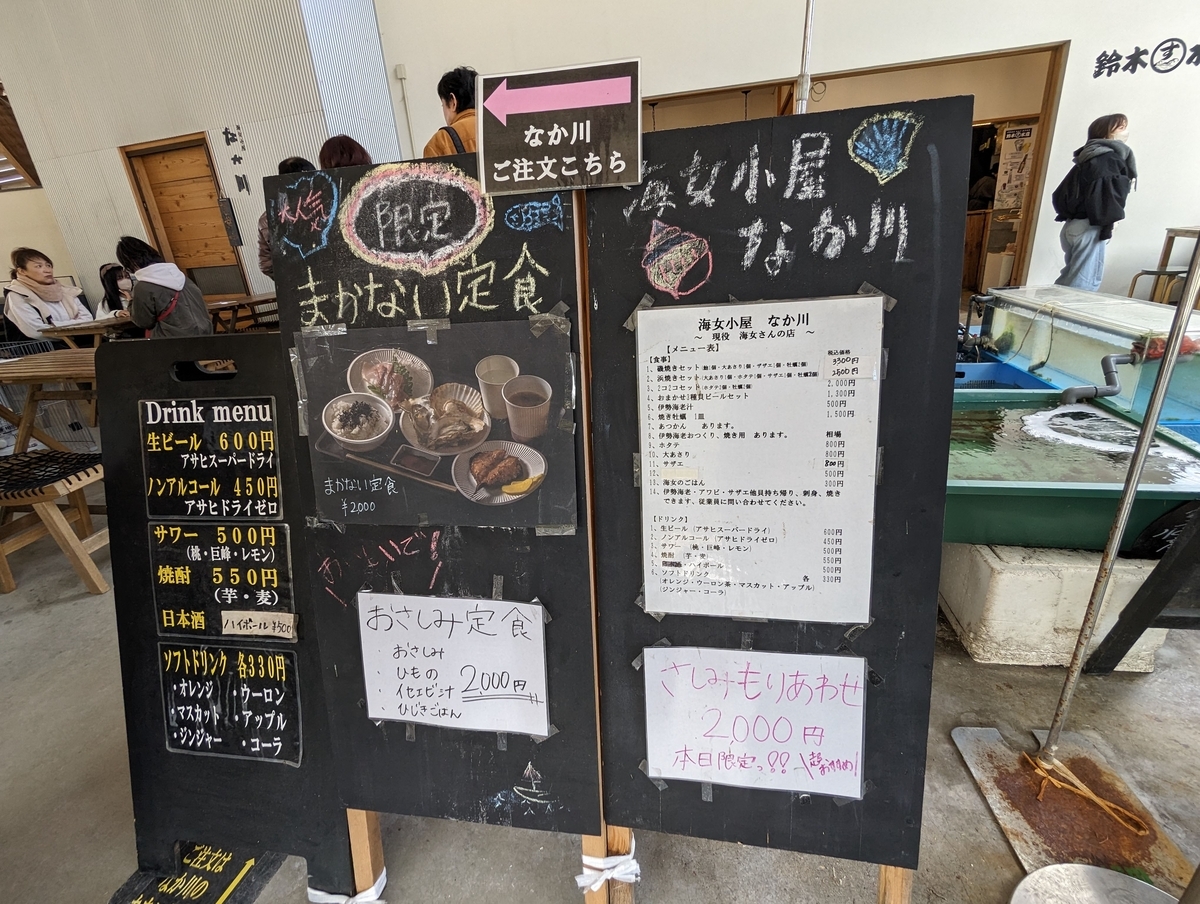 なか川
ご注文こちら
鈴木
す
なか川
大人気
限定
まかない定食
海女小屋
なか川
まかない定食
¥2,000
おさしみ定食
・おさしみ
・ひもの
・イセエビ汁
・ひじきごはん
2,000円
海女小屋 なか川
～ 現役 海女さんの店 ～
【メニュー表】
税込価格
【食事】
3300円
2,000円
4、おまかせ3種貝ビールセット 1,300円
5、伊勢海老汁 500円
6、焼き牡蠣 1皿 1,500円
7、あつかん あります。
8、伊勢海老おつくり、焼き用 あります。 相場
9、ホタテ 800円
10、大あさり 800円
11、サザエ 800円
12、 500円
13、海女のごはん 300円
14、伊勢海老・アワビ・サザエ他貝持ち帰り、刺身、焼き
できます、従業員に問い合わせてください。
【ドリンク】
1、生ビール (アサヒスーパードライ) 600円
2、ノンアルコール (アサヒドライゼロ) 450円
3、サワー (桃・巨峰・レモン) 500円
4、焼酎 (芋・麦) 550円
5、ハイボール 500円
6、ソフトドリンク 各 330円
(オレンジ・ウーロン茶・マスカット・アップル)
(ジンジャー・コーラ)
さしみもりあわせ
2,000円
本日限定っ!!
超おすすめ!
Drink menu
生ビール 600円
アサヒスーパードライ
ノンアルコール 450円
アサヒドライゼロ
サワー 500円
(桃・巨峰・レモン)
焼酎 550円
(芋・麦)
日本酒
ハイボール ¥500
ソフトドリンク 各330円
・オレンジ ・ウーロン
・マスカット ・アップル
・ジンジャー ・コーラ
ご注文は
なか川の